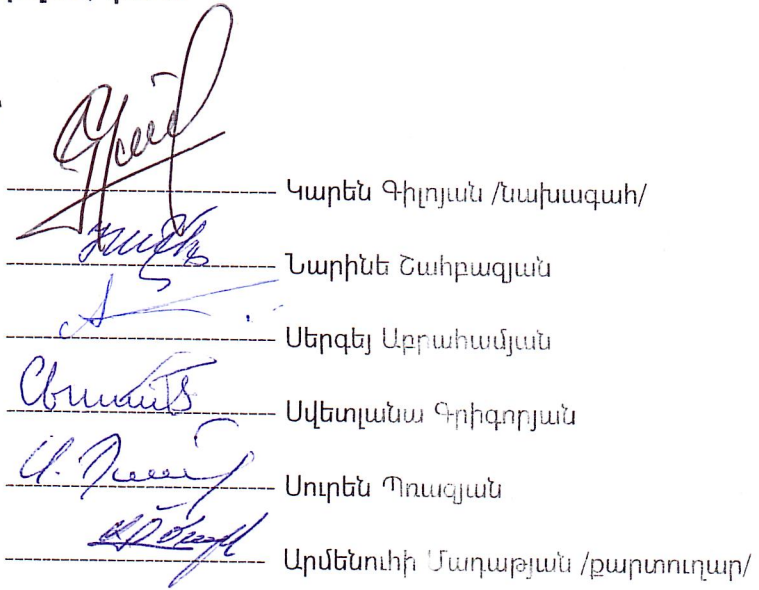 Կարեն Գիլոյան /նախագահ/
Նարինե Շահբազյան
Սերգեյ Աբրահամյան
Սվետլանա Գրիգորյան
Սուրեն Պռազյան
Արմենուհի Մադաթյան /քարտուղար/